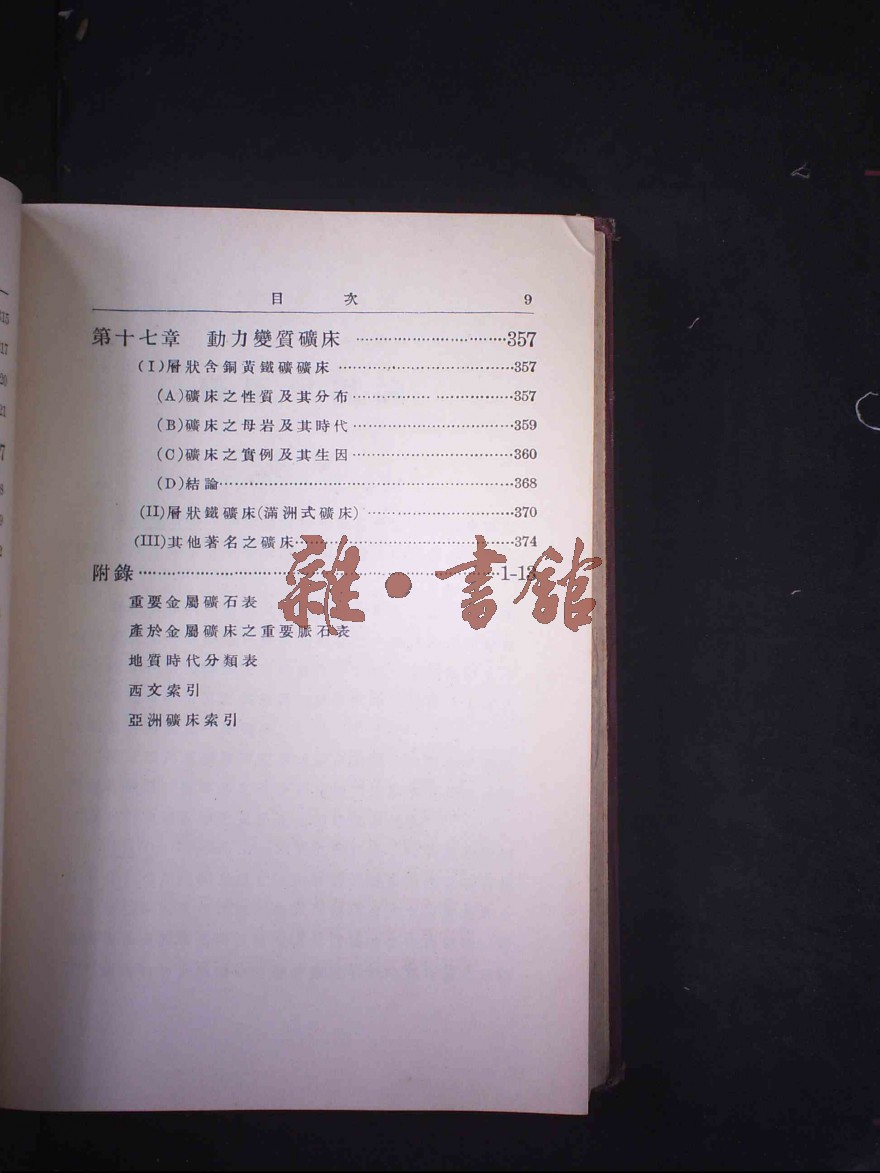 目 次 9
第十七章 動力變質礦床 ……………………………357
(I)層狀含銅黃鐵礦礦床 ……………………………357
(A)礦床之性質及其分布……………………………357
(B)礦床之母岩及其時代……………………………359
(C)礦床之實例及其生因……………………………360
(D)結論……………………………368
(II)層狀鐵礦床(滿洲式礦床) ……………………………370
(III)其他著名之礦床……………………………374
附錄……………………………1-13
重要金屬礦石表
產於金屬礦床之重要脈石表
地質時代分類表
西文索引
亞洲礦床索引
雜·書館
315
317
320
321